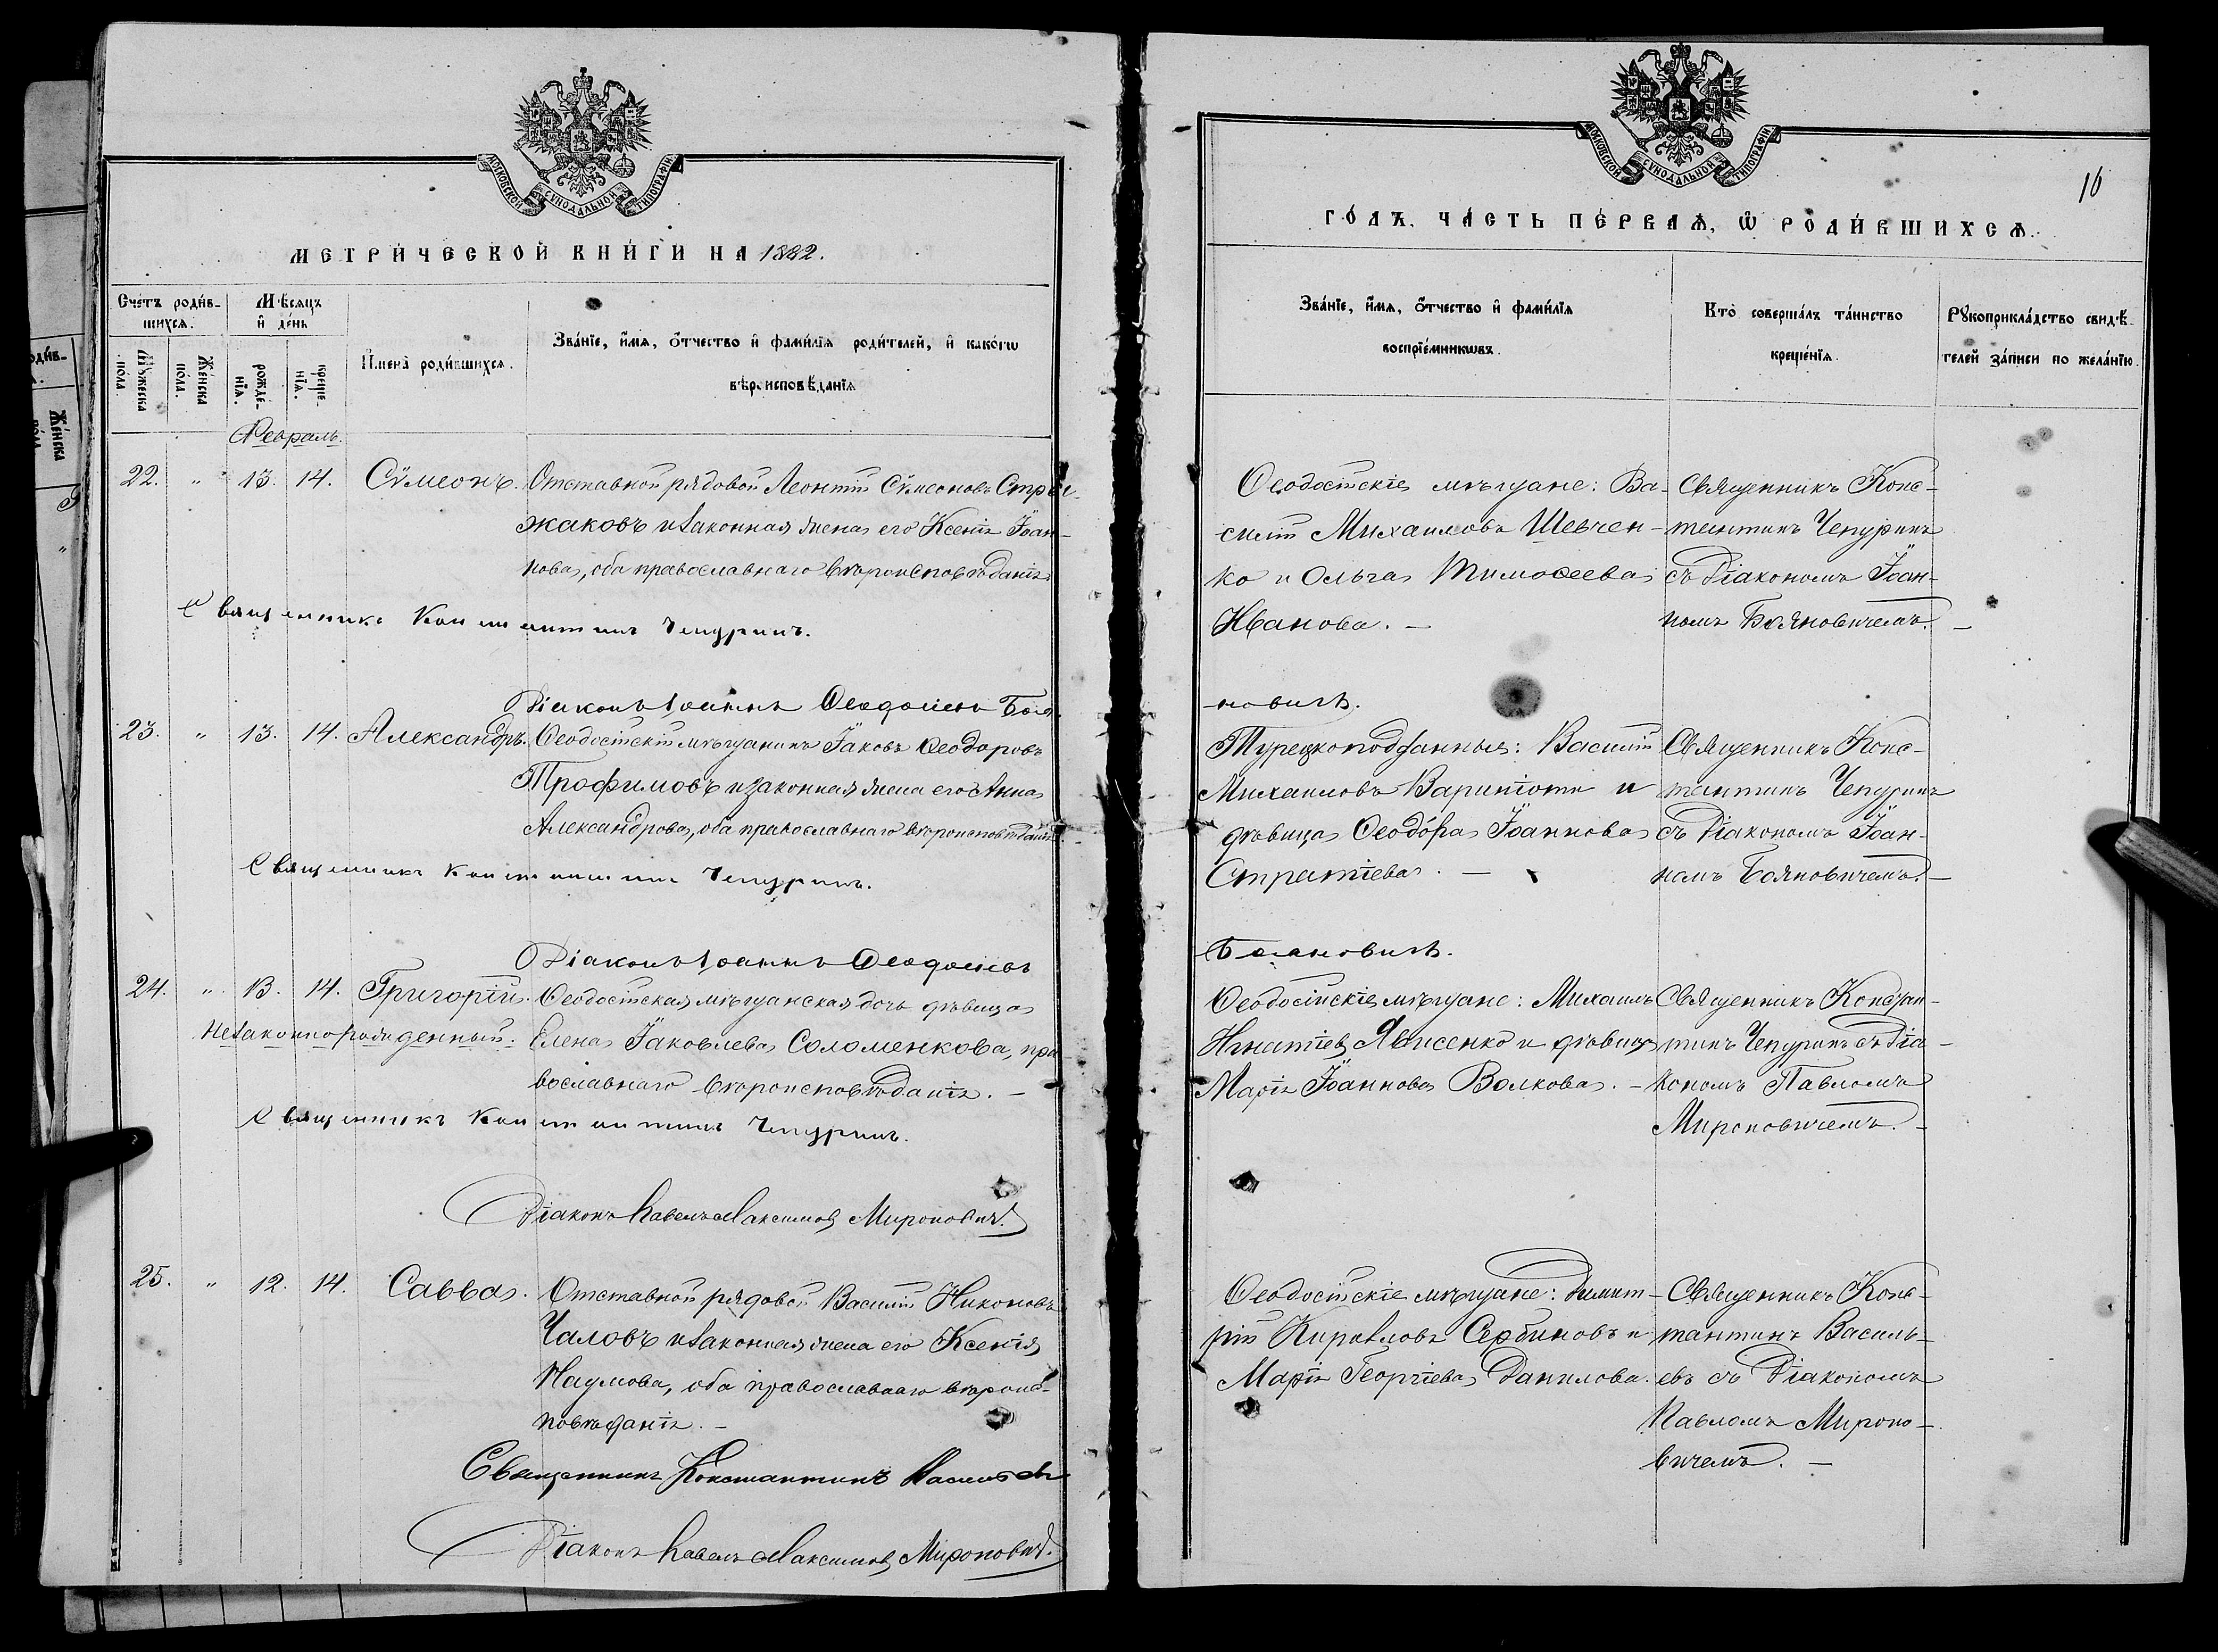 МОСКОВСКОЙ СУНОДАЛЬНОЙ ТИПОГРАФІИ
МЕТРИ́ЧЕСКОЙ КНИ́ГИ НА 1882.
Сче́тъ роди́в-
шихсѧ.
Мѣ́сяцъ
и҆ де́нь
Мꙋ́жеска
по́ла.
Же́нска
по́ла.
рожде́-
нїѧ.
креще́-
нїѧ.
И҆мена̀ роди́вшихсѧ.
Зва́нїе, и҆́мѧ, ѻ҆́тчество и҆ фами́лїѧ роди́телей, и҆ како́гѡ
вѣроисповѣ́данїѧ
Февраль.
22. " 13. 14. Сѵмеонъ. Отставной рядовой Леонтій Сѵмеоновъ Стре-
жаковъ и законная жена его Ксенія Іоан-
нова, оба православнаго вѣроисповѣданія
Священникъ Константинъ Чепуринъ.
Діаконъ Іоаннъ Ѳеодосіевъ Боя-
23. " 13. 14. Александръ. Ѳеодосійскій мѣщанинъ Іаковъ Ѳеодоровъ
Трофимовъ и законная жена его Анна
Александрова, оба православнаго вѣроисповѣданія.
Священникъ Константинъ Чепуринъ.
Діаконъ Іоаннъ Ѳеодосіевъ
24. " 13. 14. Григорій. Ѳеодосійская мѣщанская дочь дѣвица
незаконнорожденный. Елена Іаковлева Соломенкова, пра-
вославнаго вѣроисповѣданія. –
Священникъ Константинъ Чепуринъ.
Діаконъ Павелъ Максимовъ Мироновичъ.
25. " 12. 14. Савва. Отставной рядовой Василій Никоновъ
Чаловъ и законная жена его Ксенія
Наумова, оба православнаго вѣроис-
повѣданія. –
Священникъ Константинъ Васильевъ
Діаконъ Павелъ Максимовъ Мироновичъ.
МОСКОВСКОЙ СУНОДАЛЬНОЙ ТИПОГРАФІИ
10
ГО́ДЪ. ЧА́СТЬ ПЕ́РВАѦ, Ѽ РОДИ́ВШИХСѦ.
Зва́нїе, и҆́мѧ, ѻ҆́тчество и҆ фами́лїѧ
воспрїе́мникѡвъ.
Кто̀ соверша́лъ та́инство
креще́нїѧ.
Рꙋкоприкла́дство свидѣ́-
телей за́писи по жела́нїю.
Ѳеодосійскіе мѣщане: Ва-
силій Михаиловъ Шевчен-
ко и Ольга Тимоѳеева
Иванова. –
Священникъ Конс-
тантинъ Чепуринъ
съ Діакономъ Іоан-
номъ Бояновичемъ. –
новичъ.
Турецкоподданные: Василій
Михаиловъ Варипіоти и
дѣвица Ѳеодора Іоаннова
Стратіева. –
Священникъ Конс-
тантинъ Чепуринъ
съ Діакономъ Іоан-
номъ Бояновичемъ. –
Бояновичъ.
Ѳеодосійскіе мѣщане: Михаилъ
Игнатіевъ Явисенко и дѣвица
Марія Іоаннова Волкова. –
Священникъ Констан-
тинъ Чепуринъ съ Діа-
кономъ Павломъ
Мироновичемъ. –
Ѳеодосійскіе мѣщане: Димит-
рій Кирилловъ Сербиновъ и
Марія Георгіева Данилова.
Священникъ Конс-
тантинъ Василь-
евъ съ Діакономъ
Павломъ Мироно-
вичемъ. –